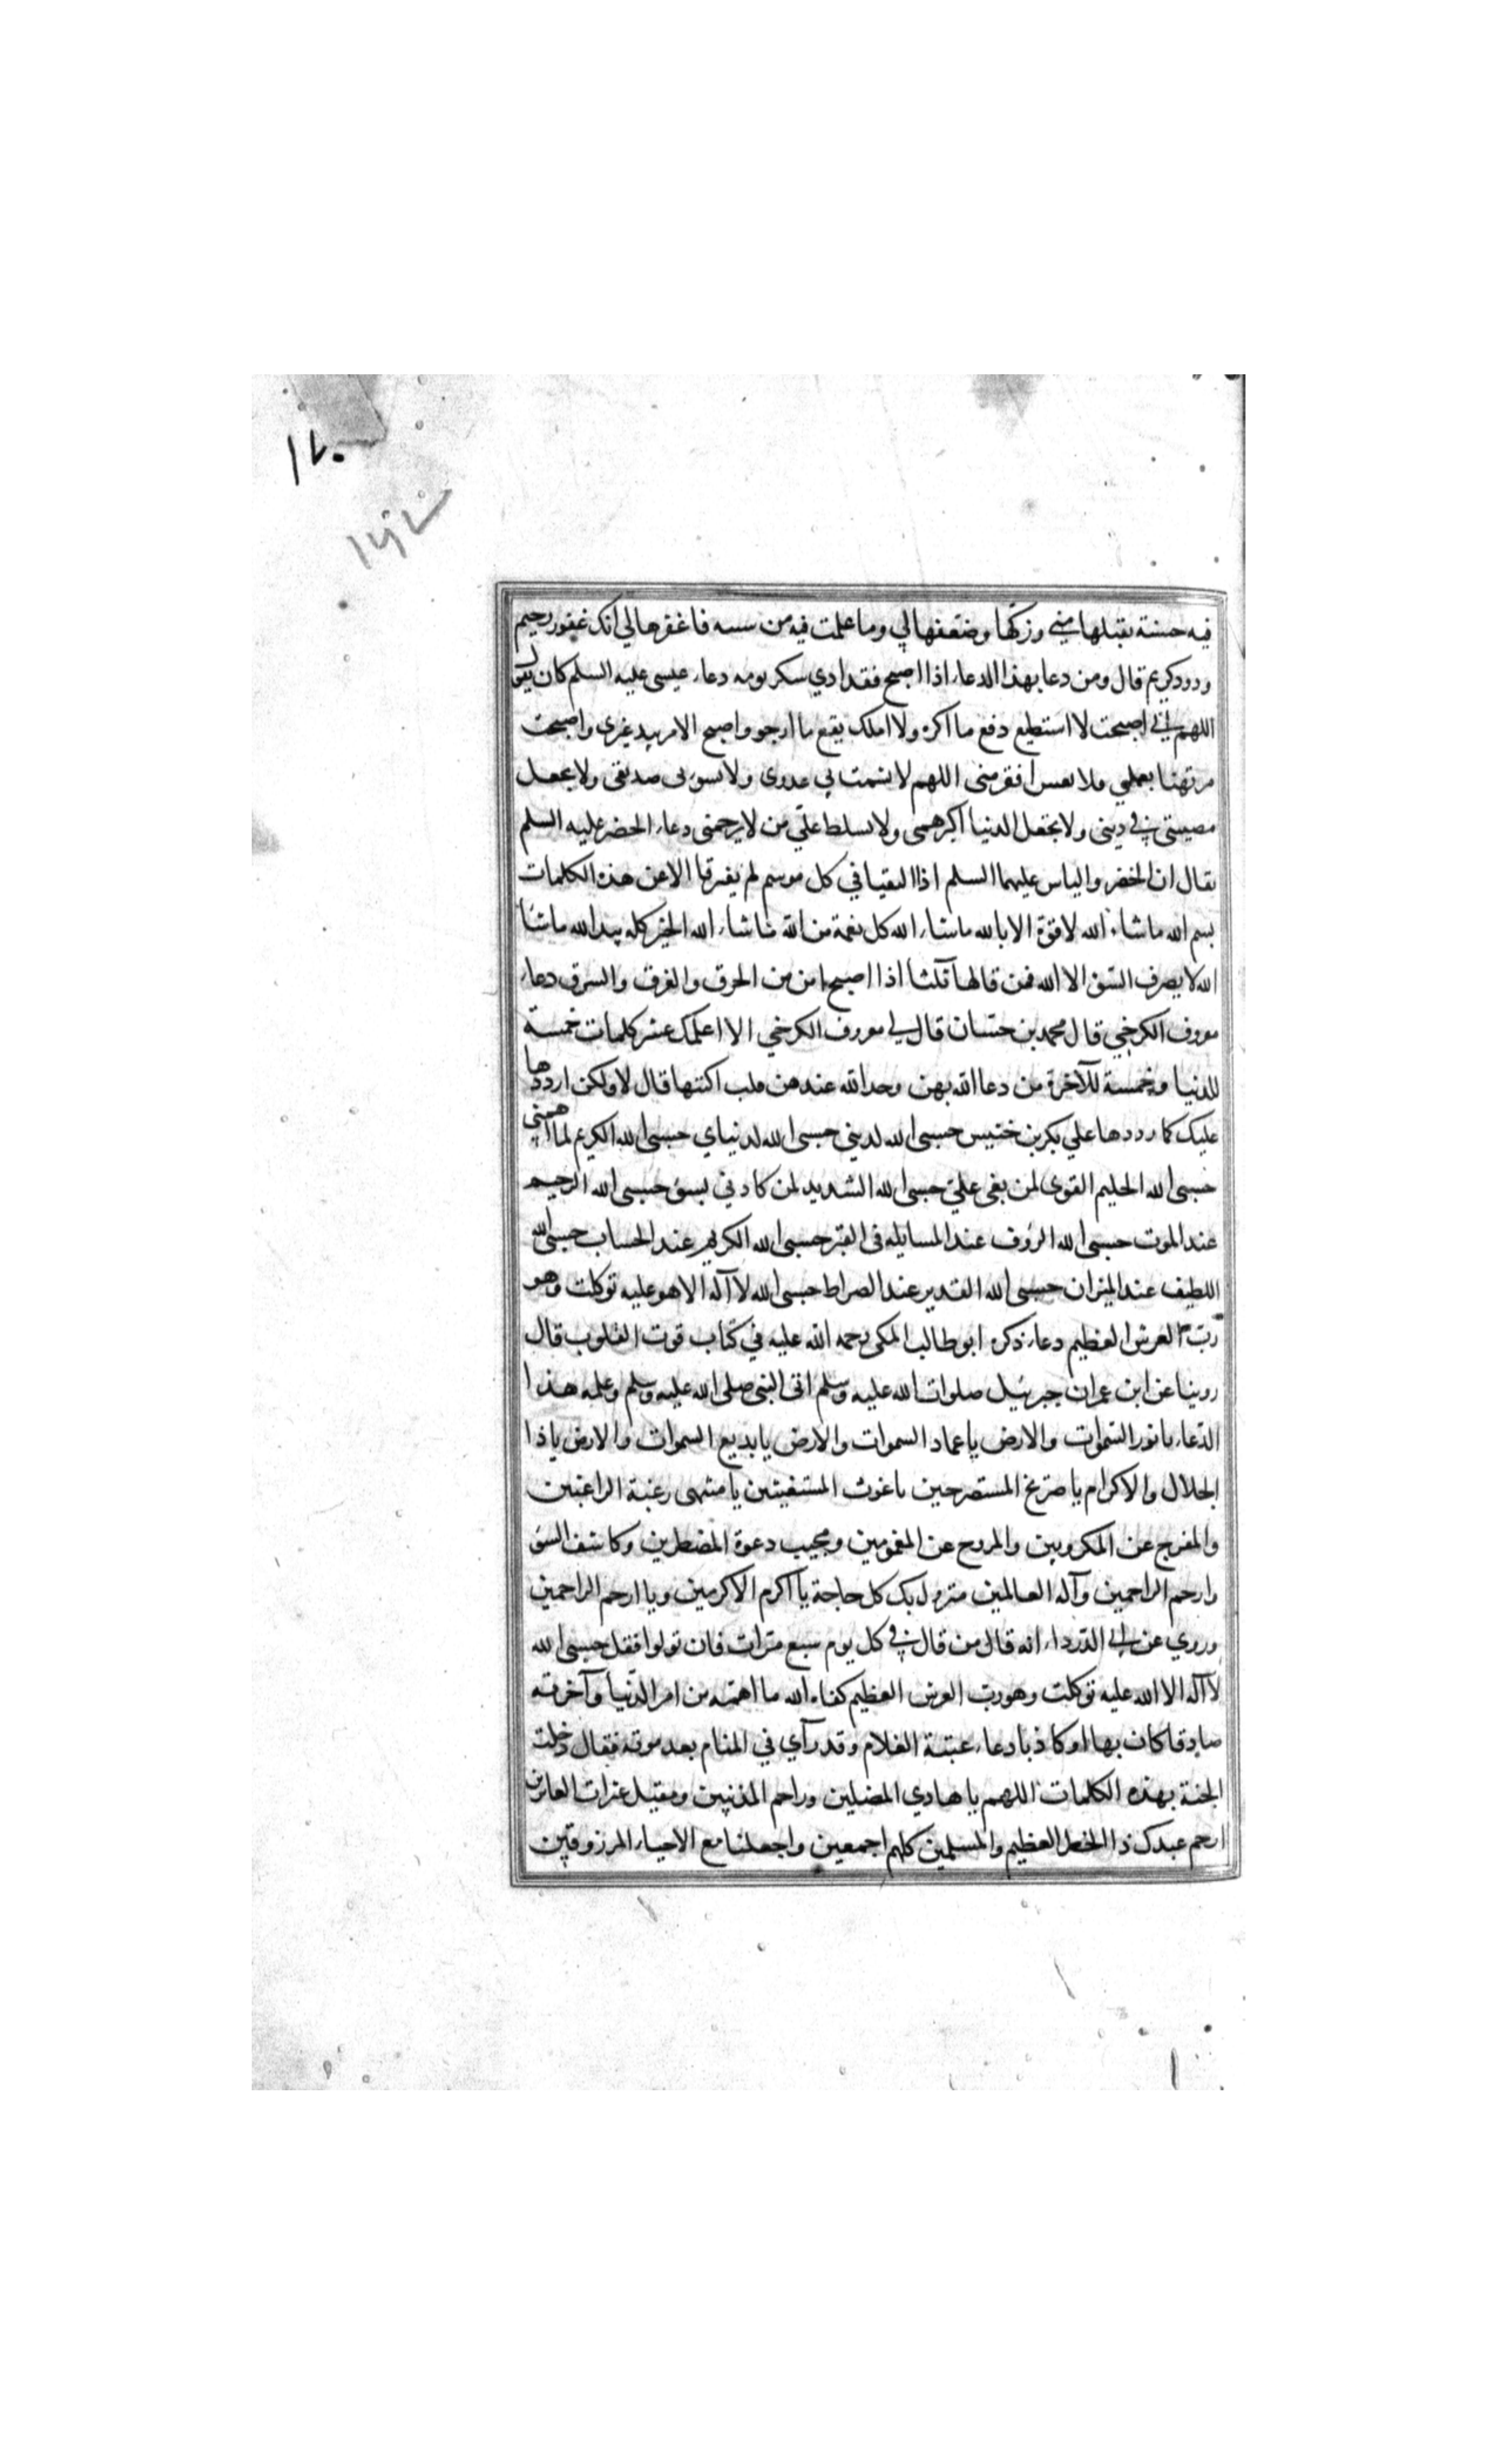 ١٧٠
فيه حسنة تقبلها مني وزكها وضعفها لي وما عملت فيه من سيئة فاغفرها لي انك غفور رحيم
ودود كريم قال ومن دعا بهذا الدعاء اذا اصبح فقد ادي شكر يومه دعاء عيسى عليه السلم كان يقول
اللهم اني اصبحت لا استطيع دفع ما اكره ولا املك نفع ما ارجو واصبح الامر بيد غيري واصبحت
مرتهنا بعملي فلا فقير افقر مني اللهم لا تشمت بي عدوي ولا تسؤ بي صديقي ولا تجعل
مصيبتي في ديني ولا تجعل الدنيا اكبر همي ولا تسلط علي من لا يرحمني دعاء الخضر عليه السلم
يقال ان الخضر والياس عليهما السلم اذا التقيا في كل موسم لم يفترقا الا عن هذه الكلمات
بسم الله ما شاء الله لا قوة الا بالله ما شاء الله كل نعمة من الله ما شاء الله الخير كله بيد الله ما شا
الله لا يصرف السؤ الا الله فمن قالها ثلثا اذا اصبح امن من الحرق والغرق والسرق دعاء
معروف الكرخي قال محمد بن حسان قال لي معروف الكرخي الا اعلمك عشر كلمات خمسة
للدنيا وخمسة للآخرة من دعا الله بهن وجد الله عندهن قلت اكتبها قال لا ولكن ارددها
عليك كما رددها علي بكر بن خنيس حسبي الله لديني حسبي الله لدنياي حسبي الله الكريم لما اهمني
حسبي الله الحليم القوى لمن بغى علي حسبي الله الشديد لمن كادني بسؤ حسبي الله الرحيم
عند الموت حسبي الله الرؤف عند المسايله في القبر حسبي الله الكريم عند الحساب حسبي الله
اللطيف عند الميزان حسبي الله القدير عند الصراط حسبي الله لا اله الا هو عليه توكلت وهو
رب العرش العظيم دعاء ذكره ابو طالب المكي رحمه الله عليه في كتاب قوت القلوب قال
روينا عن ابن عمران جبرئيل صلوات الله عليه وسلم اتى النبي صلى الله عليه وسلم وعلمه هذا
الدعاء يا نور السموات والارض يا عماد السموات والارض يا بديع السموات والارض يا ذا
الجلال والاكرام يا صريخ المستصرخين يا غوث المستغيثين يا منتهى رغبة الراغبين
والمفرج عن المكروبين والمروح عن المغمومين ومجيب دعوة المضطرين وكاشف السؤ
وارحم الراحمين وآله العالمين منزول بك كل حاجة يا اكرم الاكرمين ويا ارحم الراحمين
وروي عن ابي الدرداء انه قال من قال في كل يوم سبع مرات فان تولوا فقل حسبي الله
لا اله الا الله عليه توكلت وهو رب العرش العظيم كفاه الله ما اهمه من امر الدنيا وآخرته
صادقا كان بها او كاذبا دعاء عتبة الغلام وقد رآي في المنام بعد موته فقال دخلت
الجنة بهذه الكلمات اللهم يا هادي المضلين وراحم المذنبين ومقيل عثرات العاثرين
ارحم عبدك ذا الخطر العظيم والمسلمين كلهم اجمعين واجعلنا مع الاحياء المرزوقين